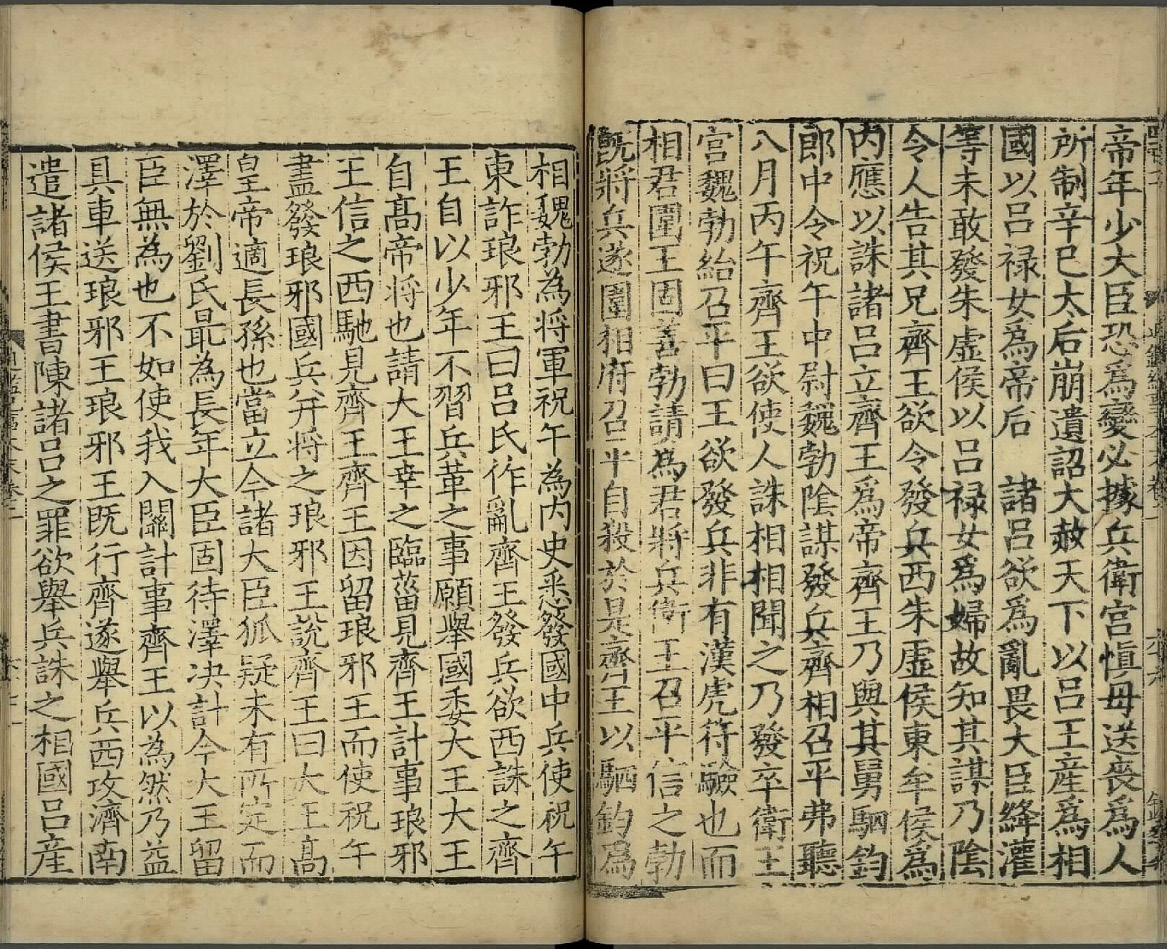 帝年少大臣恐爲變必據兵衛宫慎毋送喪爲人
所制辛巳太后崩遺詔大赦天下以吕王産爲相
國以吕禄女爲帝后　諸吕欲爲亂畏大臣絳灌
等未敢發朱虚侯以吕禄女爲婦故知其謀乃隂
令人告其兄齊王欲令發兵西朱虚侯東牟侯爲
内應以誅諸吕立齊王爲帝齊王乃與其舅駟鈞
郎中令祝午中尉魏勃隂謀發兵齊相召平弗聽
八月丙午齊王欲使人誅相相聞之乃發卒衛王
宫魏勃紿召平曰王欲發兵非有漢虎符驗也而
相君圍王固善勃請爲君將兵衛王召平信之勃
既將兵遂圍相府召平自殺於是齊王以駟鈞爲
相魏勃為將軍祝午為内史悉發國中兵使祝午
東詐琅邪王曰吕氏作亂齊王發兵欲西誅之齊
王自以少年不習兵革之事願舉國委大王大王
自髙帝將也請大王幸之臨菑見齊王計事琅邪
王信之西馳見齊王齊王因留琅邪王而使祝午
盡發琅邪國兵并將之琅邪王説齊王曰大王髙
皇帝適長孫也當立今諸大臣狐疑未有所定而
澤於劉氏最為長年大臣固待澤决計今大王留
臣無為也不如使我入關計事齊王以為然乃益
具車送琅邪王琅邪王既行齊遂舉兵西攻濟南
遣諸侯王書陳諸吕之罪欲舉兵誅之相國吕産